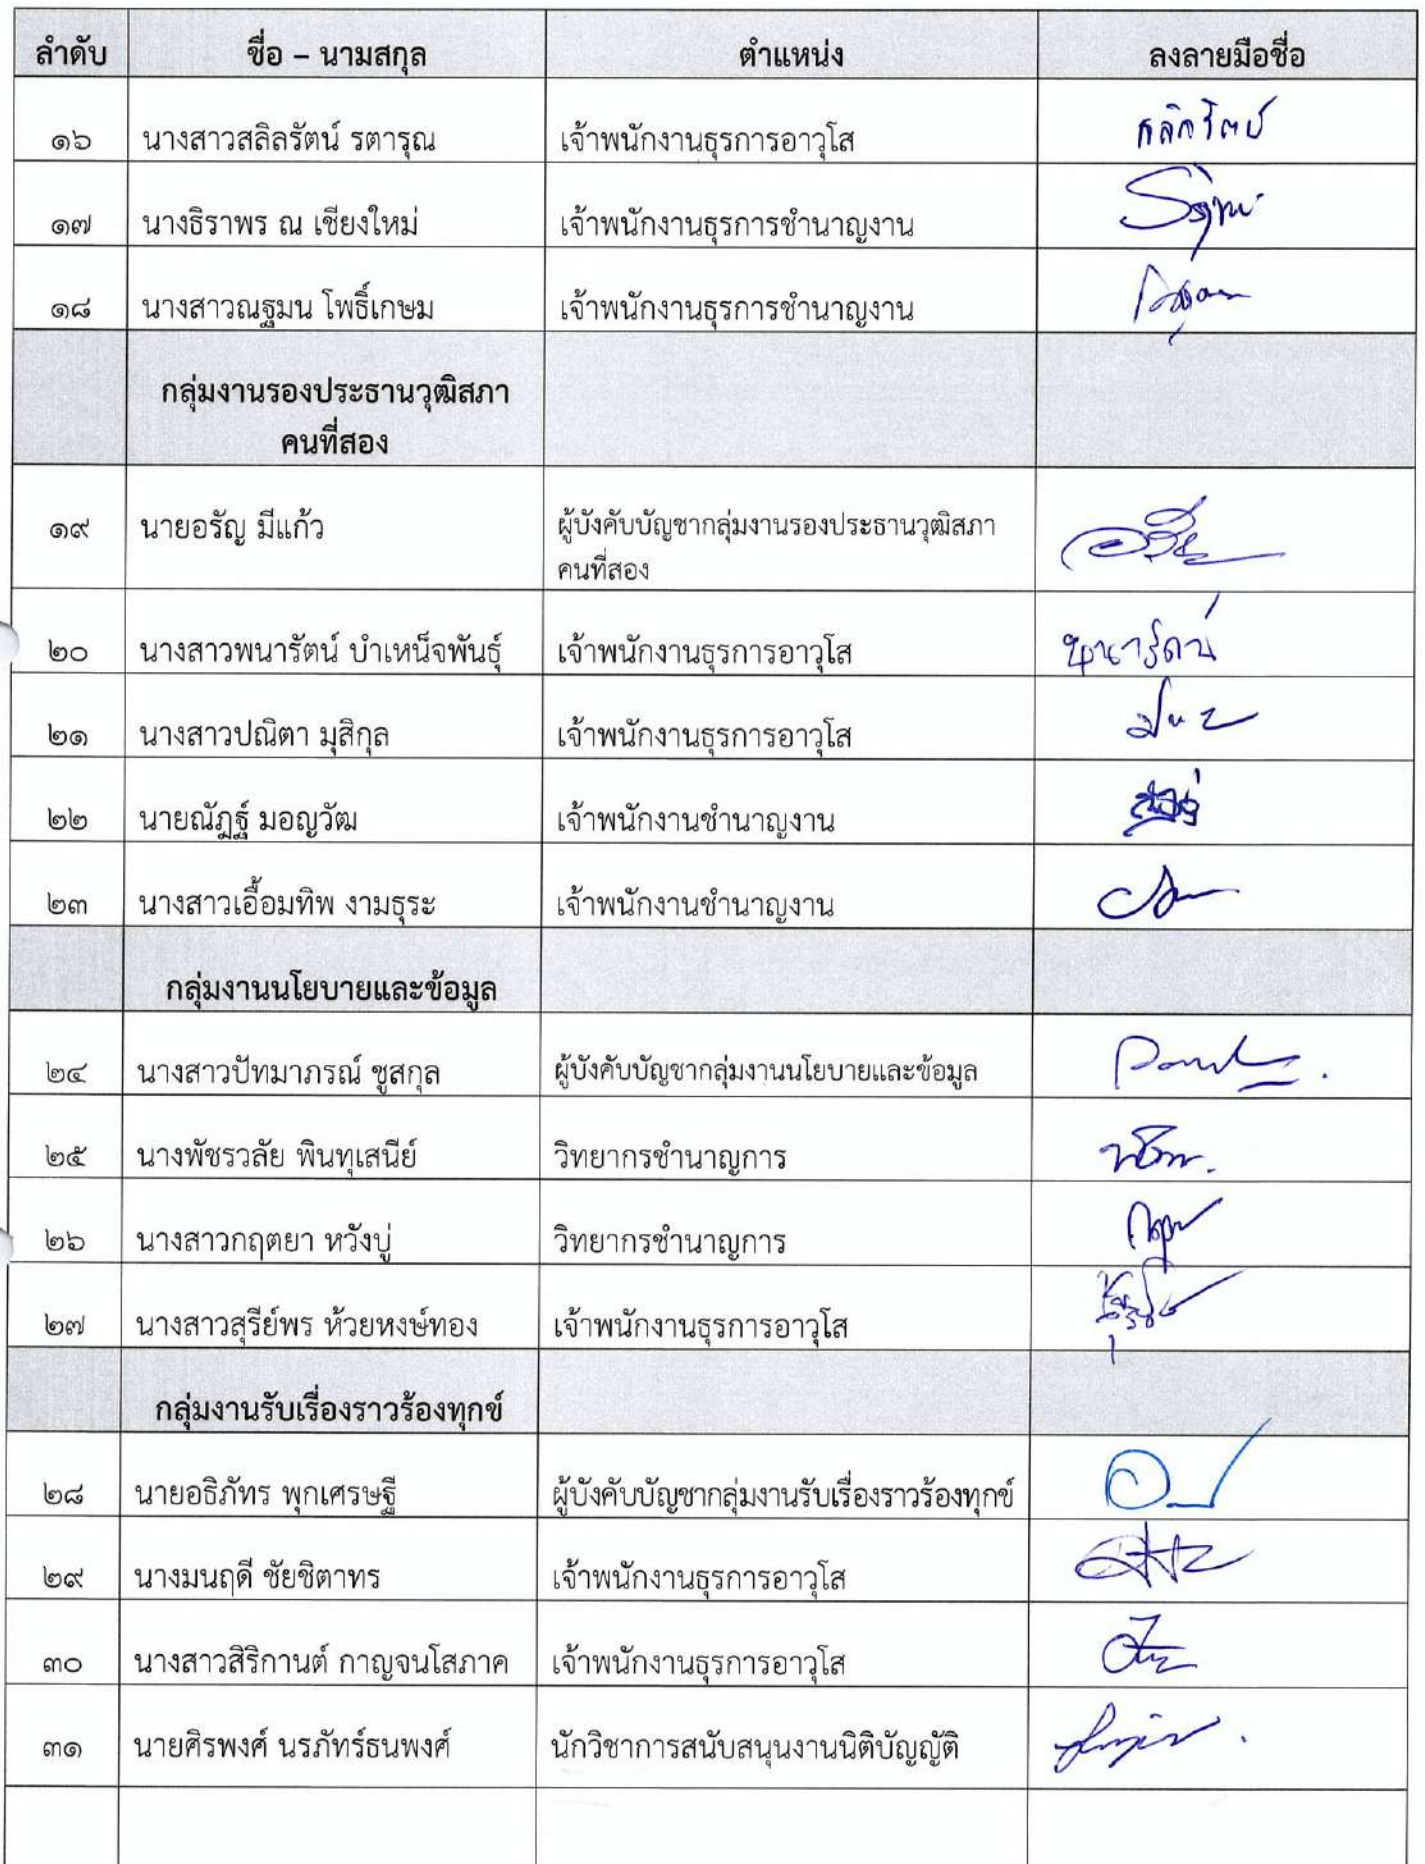 ลำดับ ชื่อ – นามสกุล ตำแหน่ง ลงลายมือชื่อ
๑๖ นางสาวสลิลรัตน์ รตารุณ เจ้าพนักงานธุรการอาวุโส
๑๗ นางธิราพร ณ เชียงใหม่ เจ้าพนักงานธุรการชำนาญงาน
๑๘ นางสาวณฐมน โพธิ์เกษม เจ้าพนักงานธุรการชำนาญงาน
กลุ่มงานรองประธานวุฒิสภา
คนที่สอง
๑๙ นายอรัญ มีแก้ว ผู้บังคับบัญชากลุ่มงานรองประธานวุฒิสภา
คนที่สอง
๒๐ นางสาวพนารัตน์ บำเหน็จพันธุ์ เจ้าพนักงานธุรการอาวุโส พนารัตน์
๒๑ นางสาวปณิตา มุสิกุล เจ้าพนักงานธุรการอาวุโส
๒๒ นายณัฏฐ์ มอญวัฒ เจ้าพนักงานชำนาญงาน
๒๓ นางสาวเอื้อมทิพ งามธุระ เจ้าพนักงานชำนาญงาน
กลุ่มงานนโยบายและข้อมูล
๒๔ นางสาวปัทมาภรณ์ ชูสกุล ผู้บังคับบัญชากลุ่มงานนโยบายและข้อมูล
๒๕ นางพัชรวลัย พินทุเสนีย์ วิทยากรชำนาญการ
๒๖ นางสาวกฤตยา หวังบู่ วิทยากรชำนาญการ
๒๗ นางสาวสุรีย์พร ห้วยหงษ์ทอง เจ้าพนักงานธุรการอาวุโส
กลุ่มงานรับเรื่องราวร้องทุกข์
๒๘ นายอธิภัทร พุกเศรษฐี ผู้บังคับบัญชากลุ่มงานรับเรื่องราวร้องทุกข์
๒๙ นางมนฤดี ชัยชิตาทร เจ้าพนักงานธุรการอาวุโส
๓๐ นางสาวสิริกานต์ กาญจนโสภาค เจ้าพนักงานธุรการอาวุโส
๓๑ นายศิรพงศ์ นรภัทร์ธนพงศ์ นักวิชาการสนับสนุนงานนิติบัญญัติ